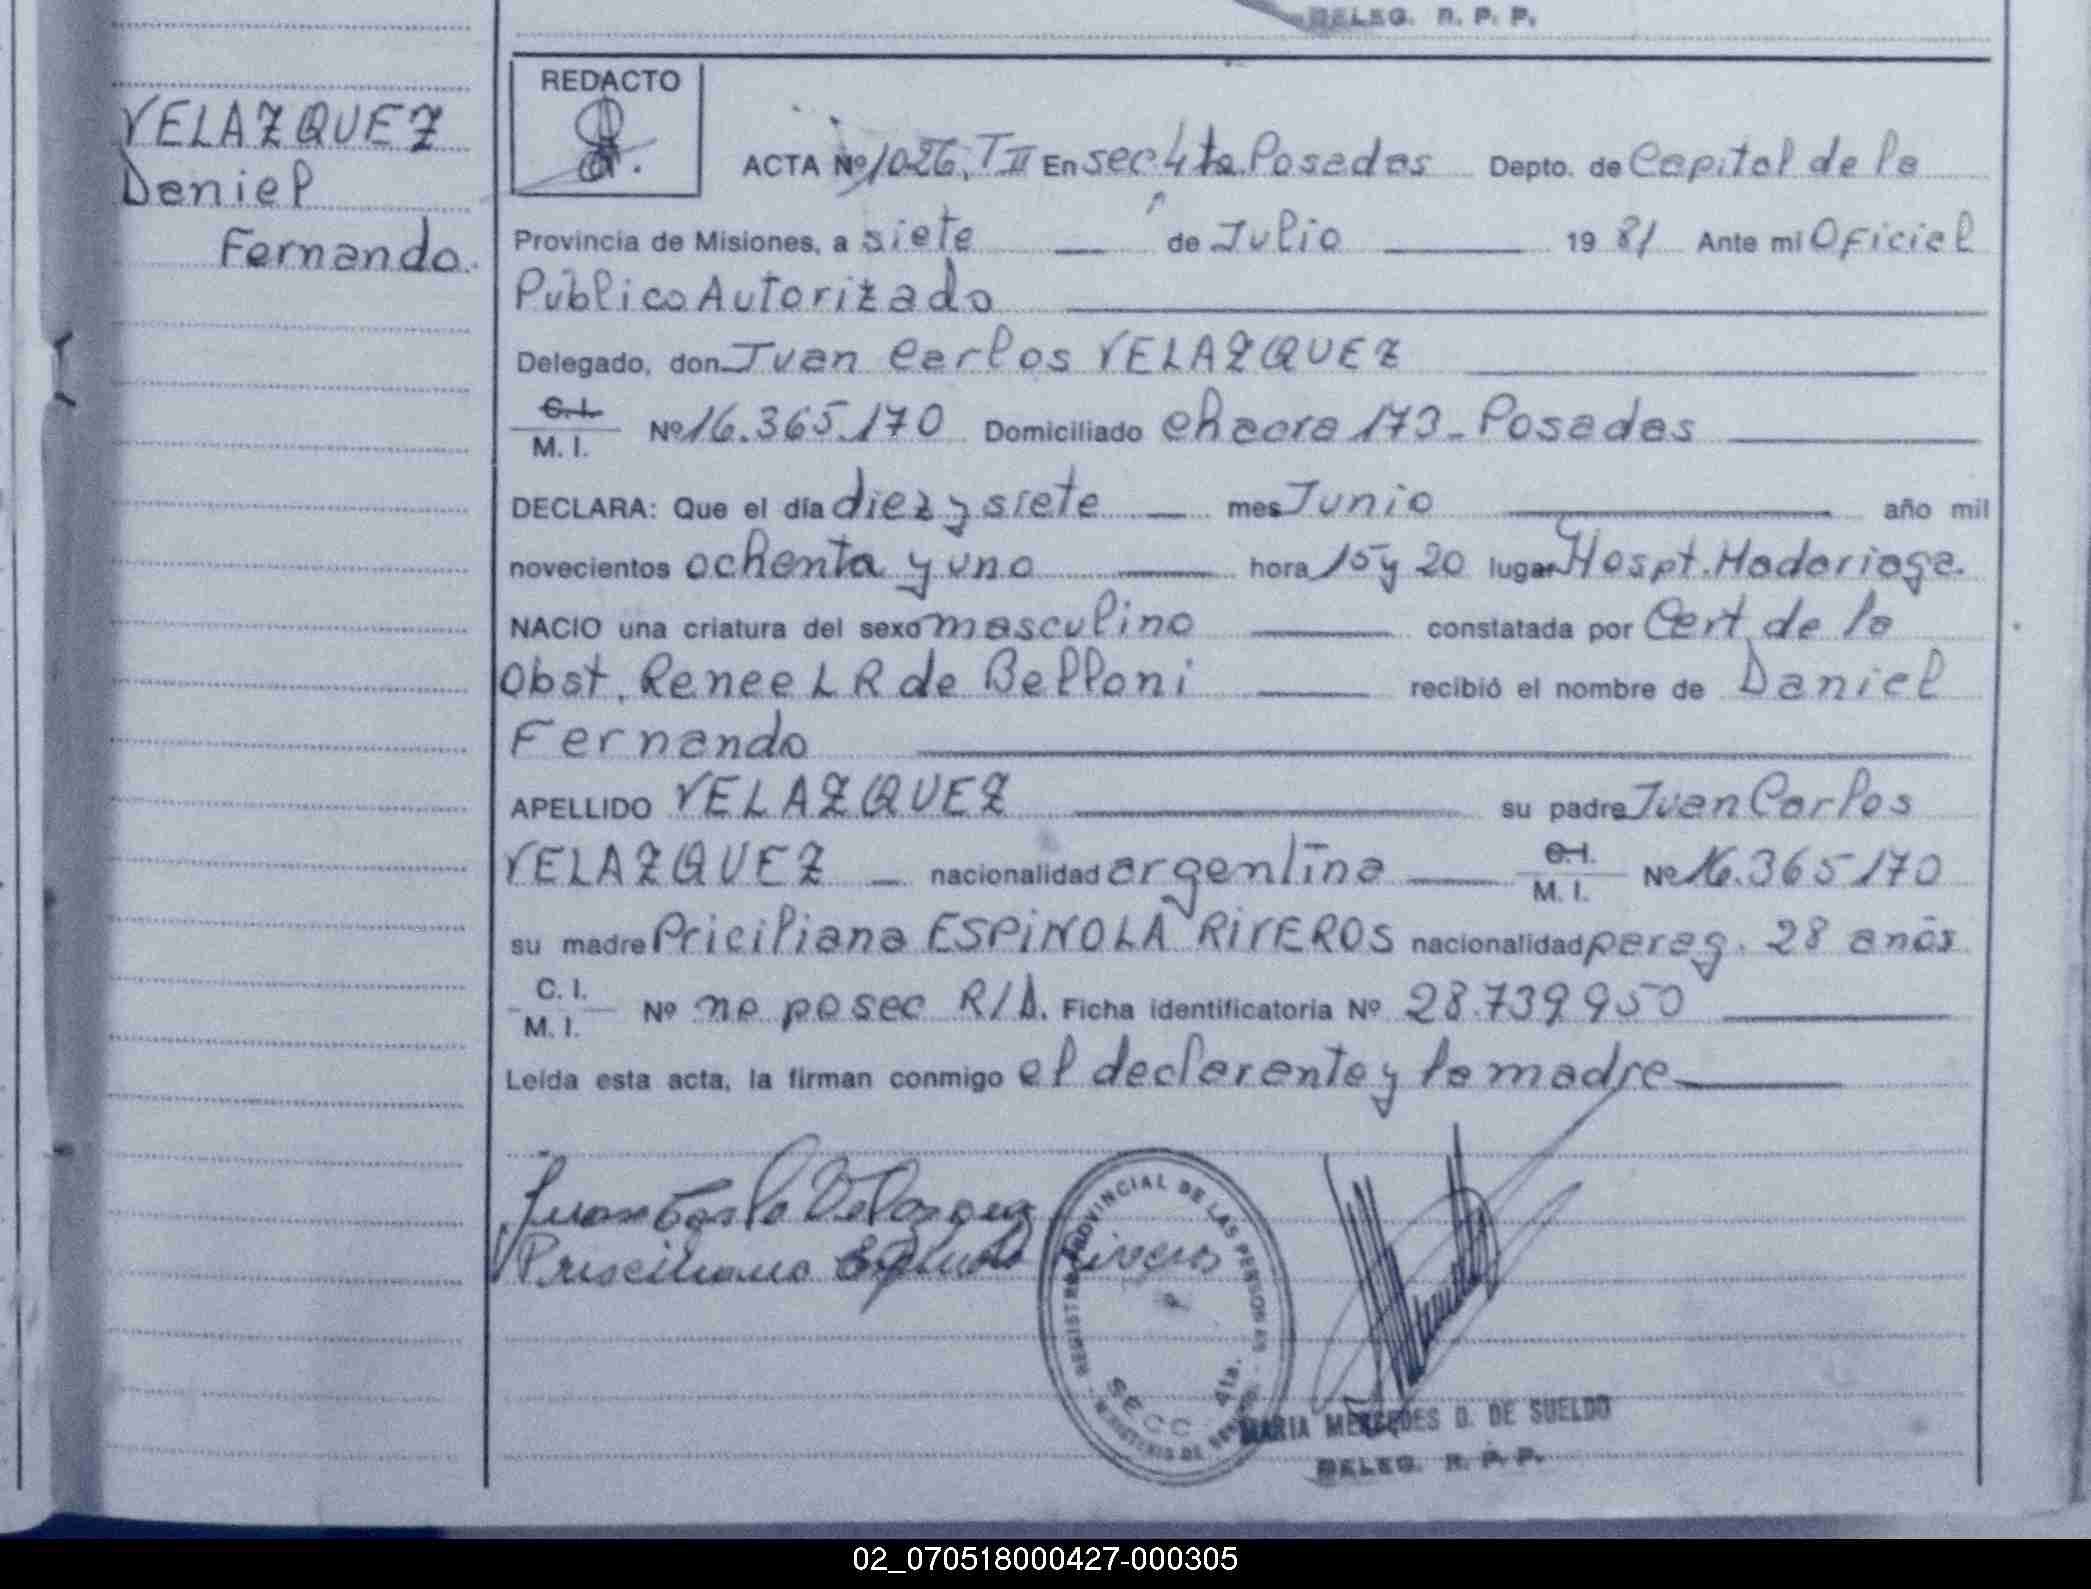 DELEG. R. P. P.
VELAZQUEZ
Daniel
Fernando.
REDACTO
ACTA Nº 1026, T II En sec 4ta. Posadas Depto. de Capital de la
Provincia de Misiones, a siete de Julio 1981 Ante mi Oficial
Público Autorizado
Delegado, don Juan Carlos VELAZQUEZ
C. I.
M. I. Nº 16.365.170 Domiciliado chacra 173 - Posadas
DECLARA: Que el día diez y siete mes Junio año mil
novecientos ochenta y uno hora 15 y 20 lugar Hospt. Madariaga.
NACIO una criatura del sexo masculino constatada por Cert. de la
Obst. Renee L R de Belloni recibió el nombre de Daniel
Fernando
APELLIDO VELAZQUEZ su padre Juan Carlos
VELAZQUEZ nacionalidad argentina C.I. M. I. Nº 16.365170
su madre Priciliana ESPINOLA RIVEROS nacionalidad parag. 28 años
C. I.
M. I. Nº no posee R/D. Ficha identificatoria Nº 28.739.950
Leída esta acta, la firman conmigo el declarante y la madre
Juan Carlo Velazquez
Prisciliana Espinola Riveros
REGISTRO PROVINCIAL DE LAS PERSONAS
SECC. 4ta.
MINISTERIO DE
MARIA MERCEDES D. DE SUELDO
DELEG. R. P. P.
02_070518000427-000305